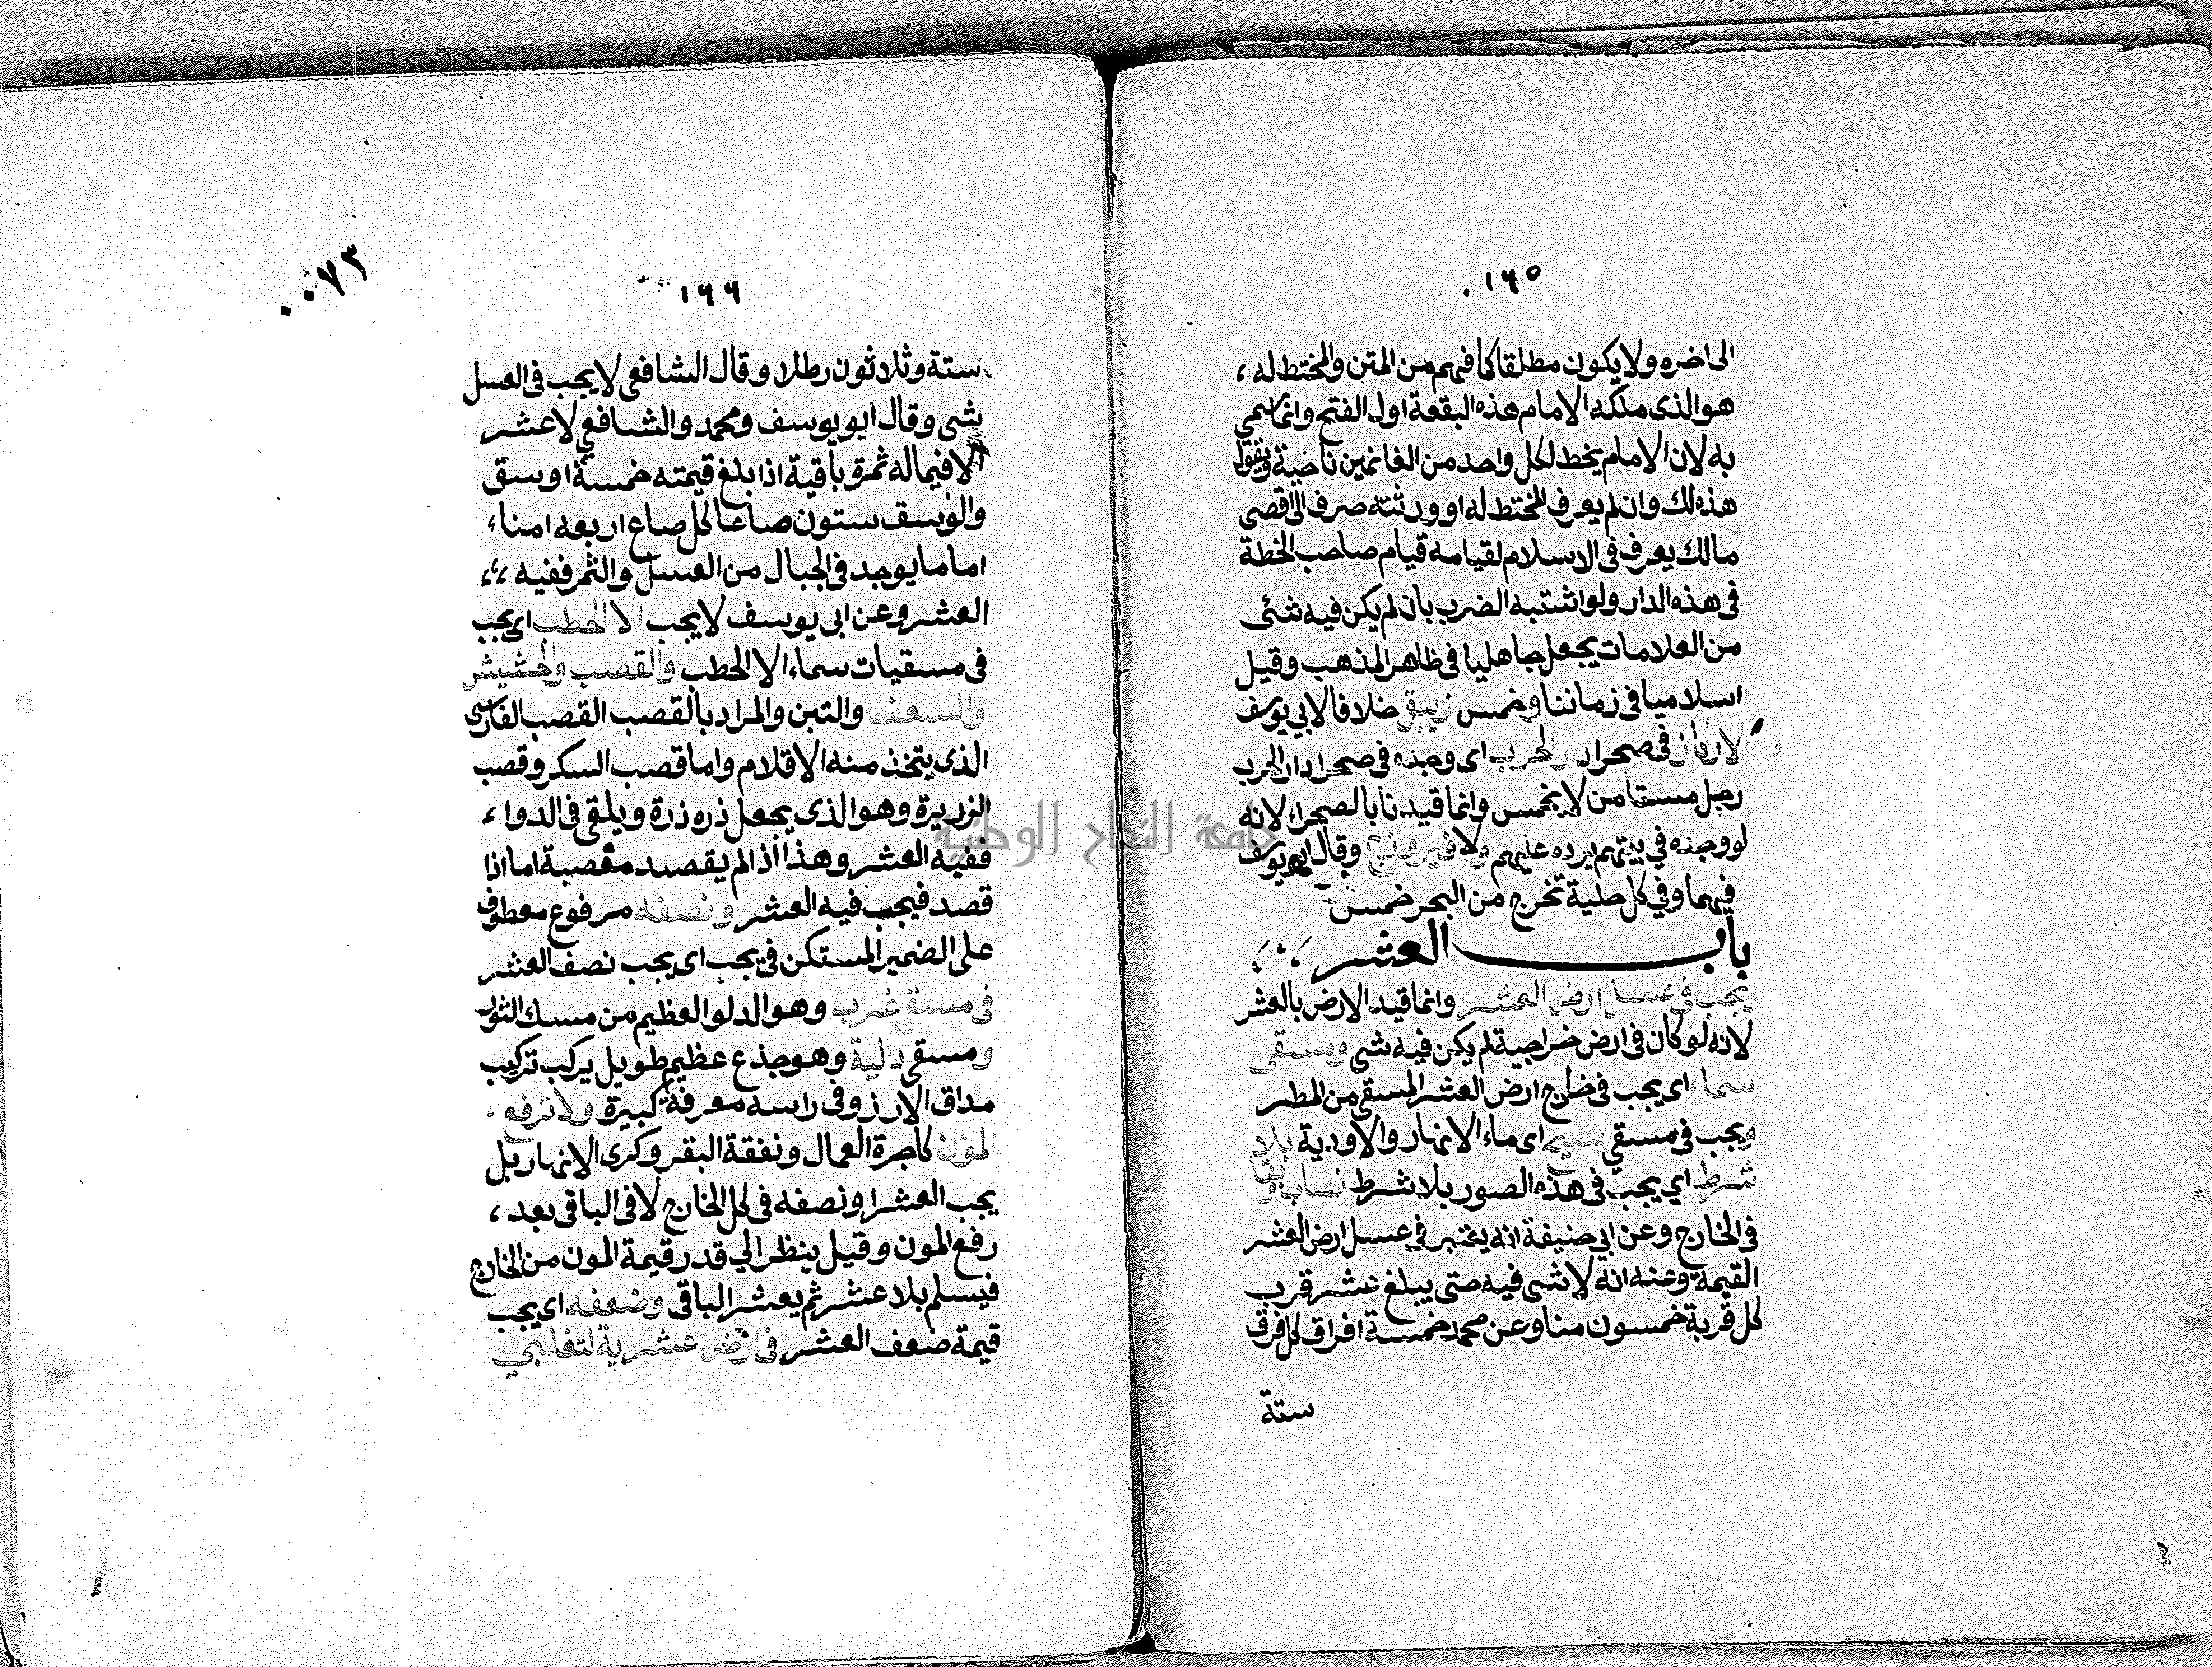 ١٦٥
الى اخره ولا يكون مطلقا كما فهم من المتن والمختط له ،
هو الذى ملكه الامام هذه البقعة اول الفتح وانما سمي
به لان الامام يخط لكل واحد من الغانمين ناحية ويقول
هذه لك وان لم يعرف المختط له او ورثته صرف الى اقصى
مالك يعرف فى الاسلام لقيامه قيام صاحب الخطة
فى هذه الدار ولو اشتبه الضرب بان لم يكن فيه شئ
من العلامات يجعل جاهليا فى ظاهر المذهب وقيل
اسلاميا فى زماننا وخمس زيبق خلافا لابي يوسف
لا ركاز فى صحرا دار الحرب اى وجده فى صحرا دار الحرب
رجل مستامن لا يخمس وانما قيدنا بالصحراء لانه
لو وجده في بيتهم يرده عليهم ولا فيروزج وقال ابو يوسف
فيهما وفي كل حلية تخرج من البحر خمس
باب العشر
يجب فى عسل ارض العشر وانما قيد الارض بالعشر
لانه لو كان فى ارض خراجية لم يكن فيه شى ومسقى
سماء اى يجب فى خارج ارض العشر المسقى من المطر
ويجب فى مسقي سيح اى ماء الانهار والاودية بلا
شرط اي يجب فى هذه الصور بلا شرط نصاب
فى الخارج وعن ابي حنيفة انه يعتبر في عسل ارض العشر
القيمة وعنه انه لا شى فيه حتى يبلغ عشر قرب
كل قربة خمسون منا وعن محمد خمسة افراق كل فرق
ستة
٠٠٧٣
١٦٦
ستة وثلاثون رطلا وقال الشافعى لا يجب فى العسل
شى وقال ابو يوسف ومحمد والشافعي لا عشر
الا فيما له ثمرة باقية اذا بلغ قيمته خمسة اوسق
والوسق ستون صاعا كل صاع اربعه امناء
اما ما يوجد فى الجبال من العسل والثمر ففيه
العشر وعن ابى يوسف لا يجب الا الحطب اى يجب
فى مسقيات سماء الا الحطب والقصب والحشيش
والسعف والتبن والمراد بالقصب القصب الفارسى
الذى يتخذ منه الاقلام واما قصب السكر وقصب
الزريرة وهو الذى يجعل ذره ذرة ويلقى فى الدواء
ففيه العشر وهذا اذا لم يقصد مقصبة اما اذا
قصد فيجب فيه العشر ونصفه مرفوع معطوف
على الضمير المستكن فى يجب اى يجب نصف العشر
فى مسقى غرب وهو الدلو العظيم من مسك الثور
ومسقى دالية وهو جذع عظيم طويل يركب تركيب
مداق الارز وفى راسه معرفة كبيرة ولا ترفع ،
المؤن كاجرة العمال ونفقة البقر وكرى الانهار بل
يجب العشر او نصفه فى كل الخارج لا فى الباقى بعد ،
رفع المون وقيل ينظر الي قدر قيمة المون من الخارج
فيسلم بلا عشر ثم يعشر الباقى وضعفه اى يجب
قيمة ضعف العشر فى ارض عشرية لتغلبي
جامعة النجاح الوطنية